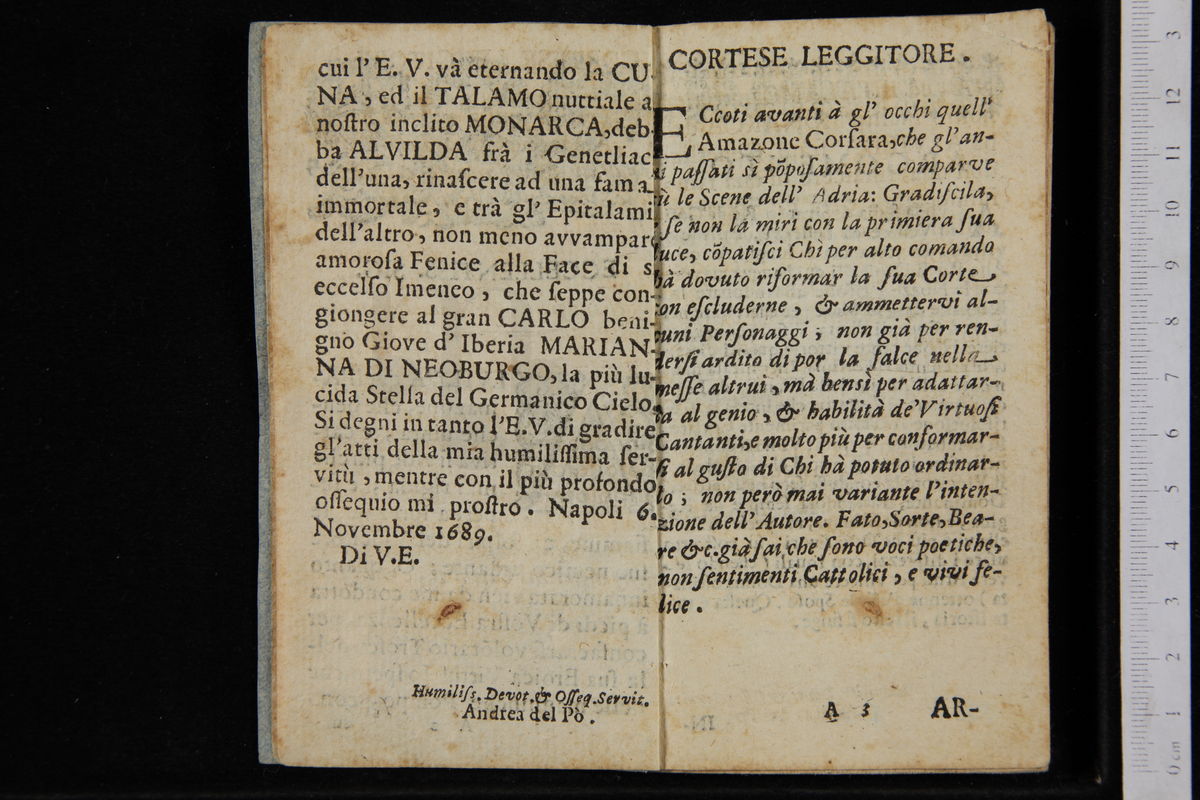 cui l' E. V. và eternando la CU-
NA, ed il TALAMO nuttiale a
noſtro inclito MONARCA, deb-
ba ALVILDA frà i Genetliac
dell'una, rinaſcere ad una fama
immortale, e trà gl' Epitalami
dell'altro, non meno avvampar
amoroſa Fenice alla Face di s
eccelſo Imeneo, che ſeppe con-
giongere al gran CARLO beni-
gno Giove d' Iberia MARIAN-
NA DI NEOBURGO, la più lu-
cida Stella del Germanico Cielo.
Si degni in tanto l'E.V. di gradire
gl'atti della mia humiliſſima ſer-
vitù, mentre con il più profondo
oſſequio mi proſtro. Napoli 6.
Novembre 1689.
Di V.E.
Humiliſs. Devot. & Oſſeq. Servit.
Andrea del Pò.
CORTESE LEGGITORE.
ECcoti avanti à gl' occhi quell'
Amazone Corſara, che gl'an-
i paſſati sì põpoſamente comparve
ù le Scene dell' Adria: Gradiſcila,
ſe non la miri con la primiera ſua
luce, cõpatiſci Chì per alto comando
hà dovuto riformar la ſua Corte
on eſcluderne, & ammettervi al-
cuni Perſonaggi; non già per ren-
derſi ardito di por la falce nella
meſſe altrui, mà bensì per adattar-
la al genio, & habilità de'Virtuoſi
Cantanti, e molto più per conformar-
ſi al guſto di Chi hà potuto ordinar-
lo; non però mai variante l'inten-
zione dell' Autore. Fato, Sorte, Bea-
re &c. già ſai che ſono voci poetiche,
non ſentimenti Cattolici, e vivi fe-
lice.
A 3 AR-